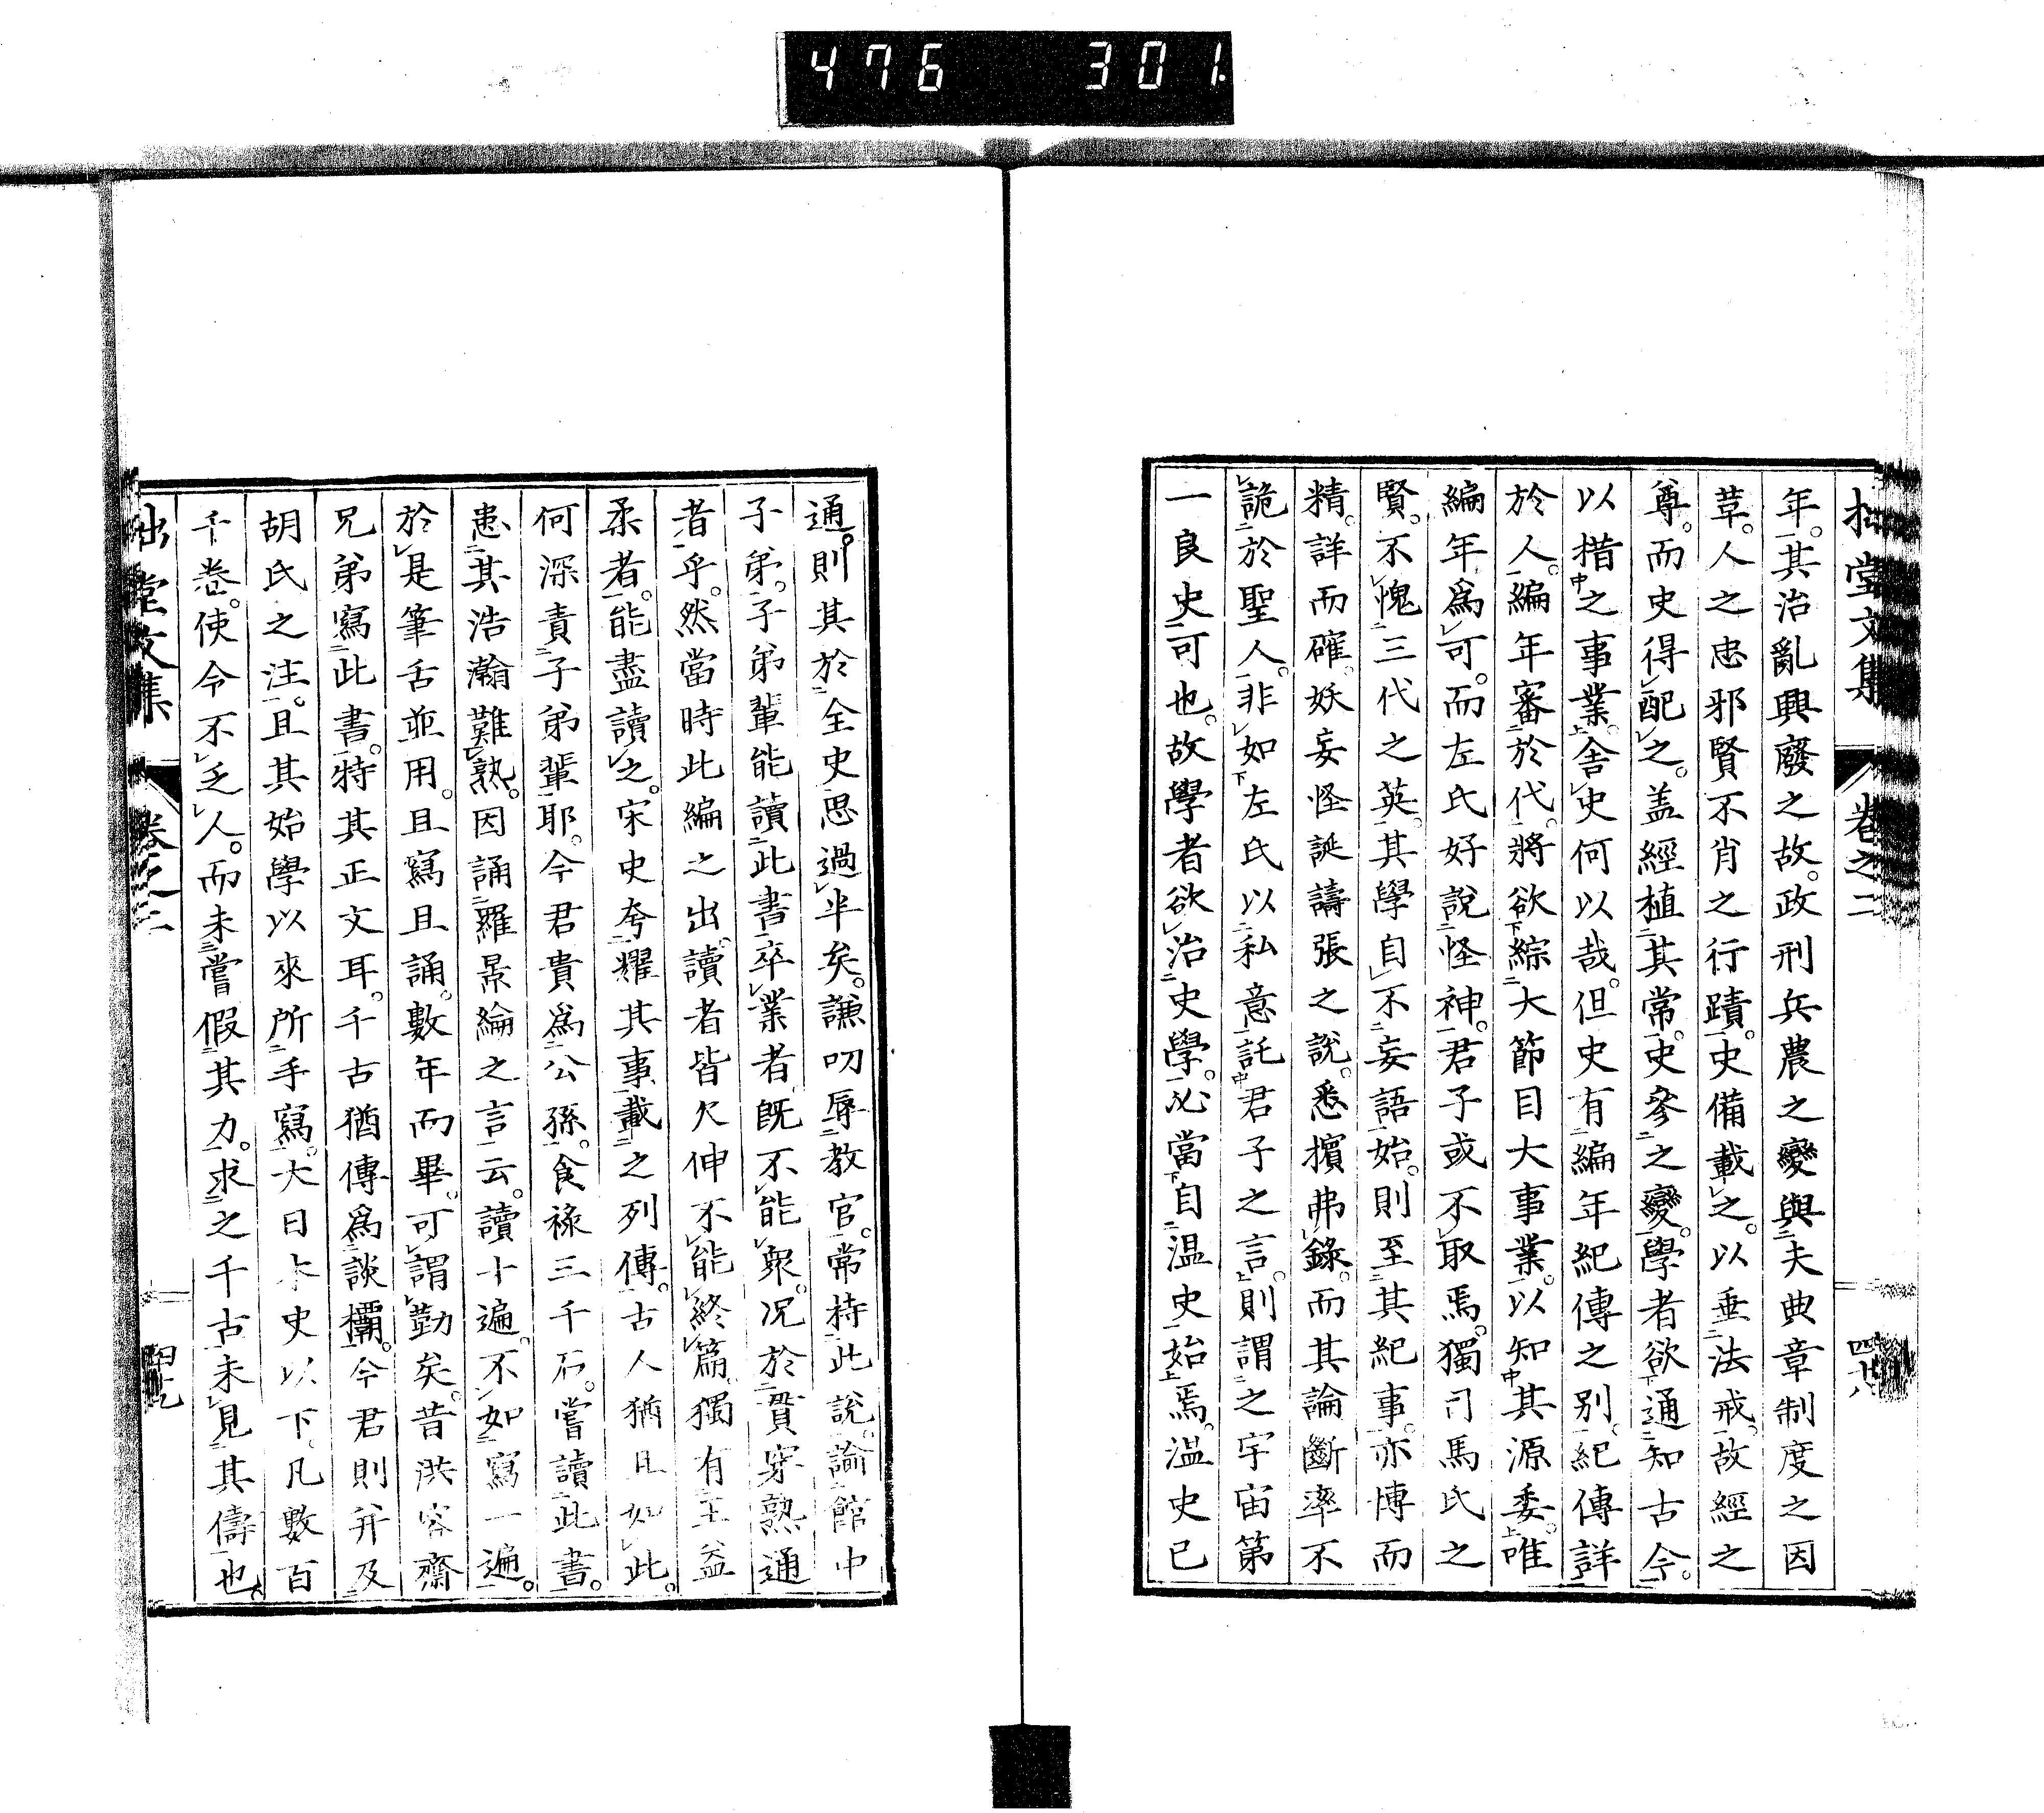 476 301
拙堂文集 卷之二 四十八
年其治亂興廢之故。政刑兵農之變與夫典章制度之因
革。人之忠邪賢不肖之行蹟。史備載之。以垂法戒。故經之
尊。而史得配之。蓋經植其常。史參之變。學者欲通知古今。
以措之事業。舍史何以哉。但史有編年紀傳之別。紀傳詳
於人。編年審於代。將欲綜大節目大事業。以知其源委。唯
編年爲可。而左氏好說怪神。君子或不取焉。獨司馬氏之
賢。不愧三代之英。其學自不妄語始。則至其紀事。亦博而
精。詳而確。妖妄怪誕譸張之說。悉擯弗錄。而其論斷率不
詭於聖人。非如左氏以私意託君子之言。則謂之宇宙第
一良史可也。故學者欲治史學。必當自溫史始焉。溫史已
通。則其於全史思過半矣。謙叨辱教官。常持此說。諭館中
子弟。子弟輩能讀此書卒業者。既不能衆。况於貫穿熟通
者乎。然當時此編之出。讀者皆欠伸不能終篇。獨有王益
柔者。能盡讀之。宋史夸耀其事。載之列傳。古人猶且如此。
何深責子弟輩耶。今君貴爲公孫。食祿三千石。嘗讀此書。
患其浩瀚難熟。因誦羅景綸之言云。讀十遍。不如寫一遍。
於是筆舌並用。且寫且誦。數年而畢。可謂勤矣。昔洪容齋
兄弟寫此書。特其正文耳。千古猶傳爲談欛。今君則并及
胡氏之注。且其始學以來所手寫。大日本史以下。凡數百
千卷。使令不乏人。而未嘗假其力。求之千古未見其儔也。
拙堂文集 卷之二 四十九